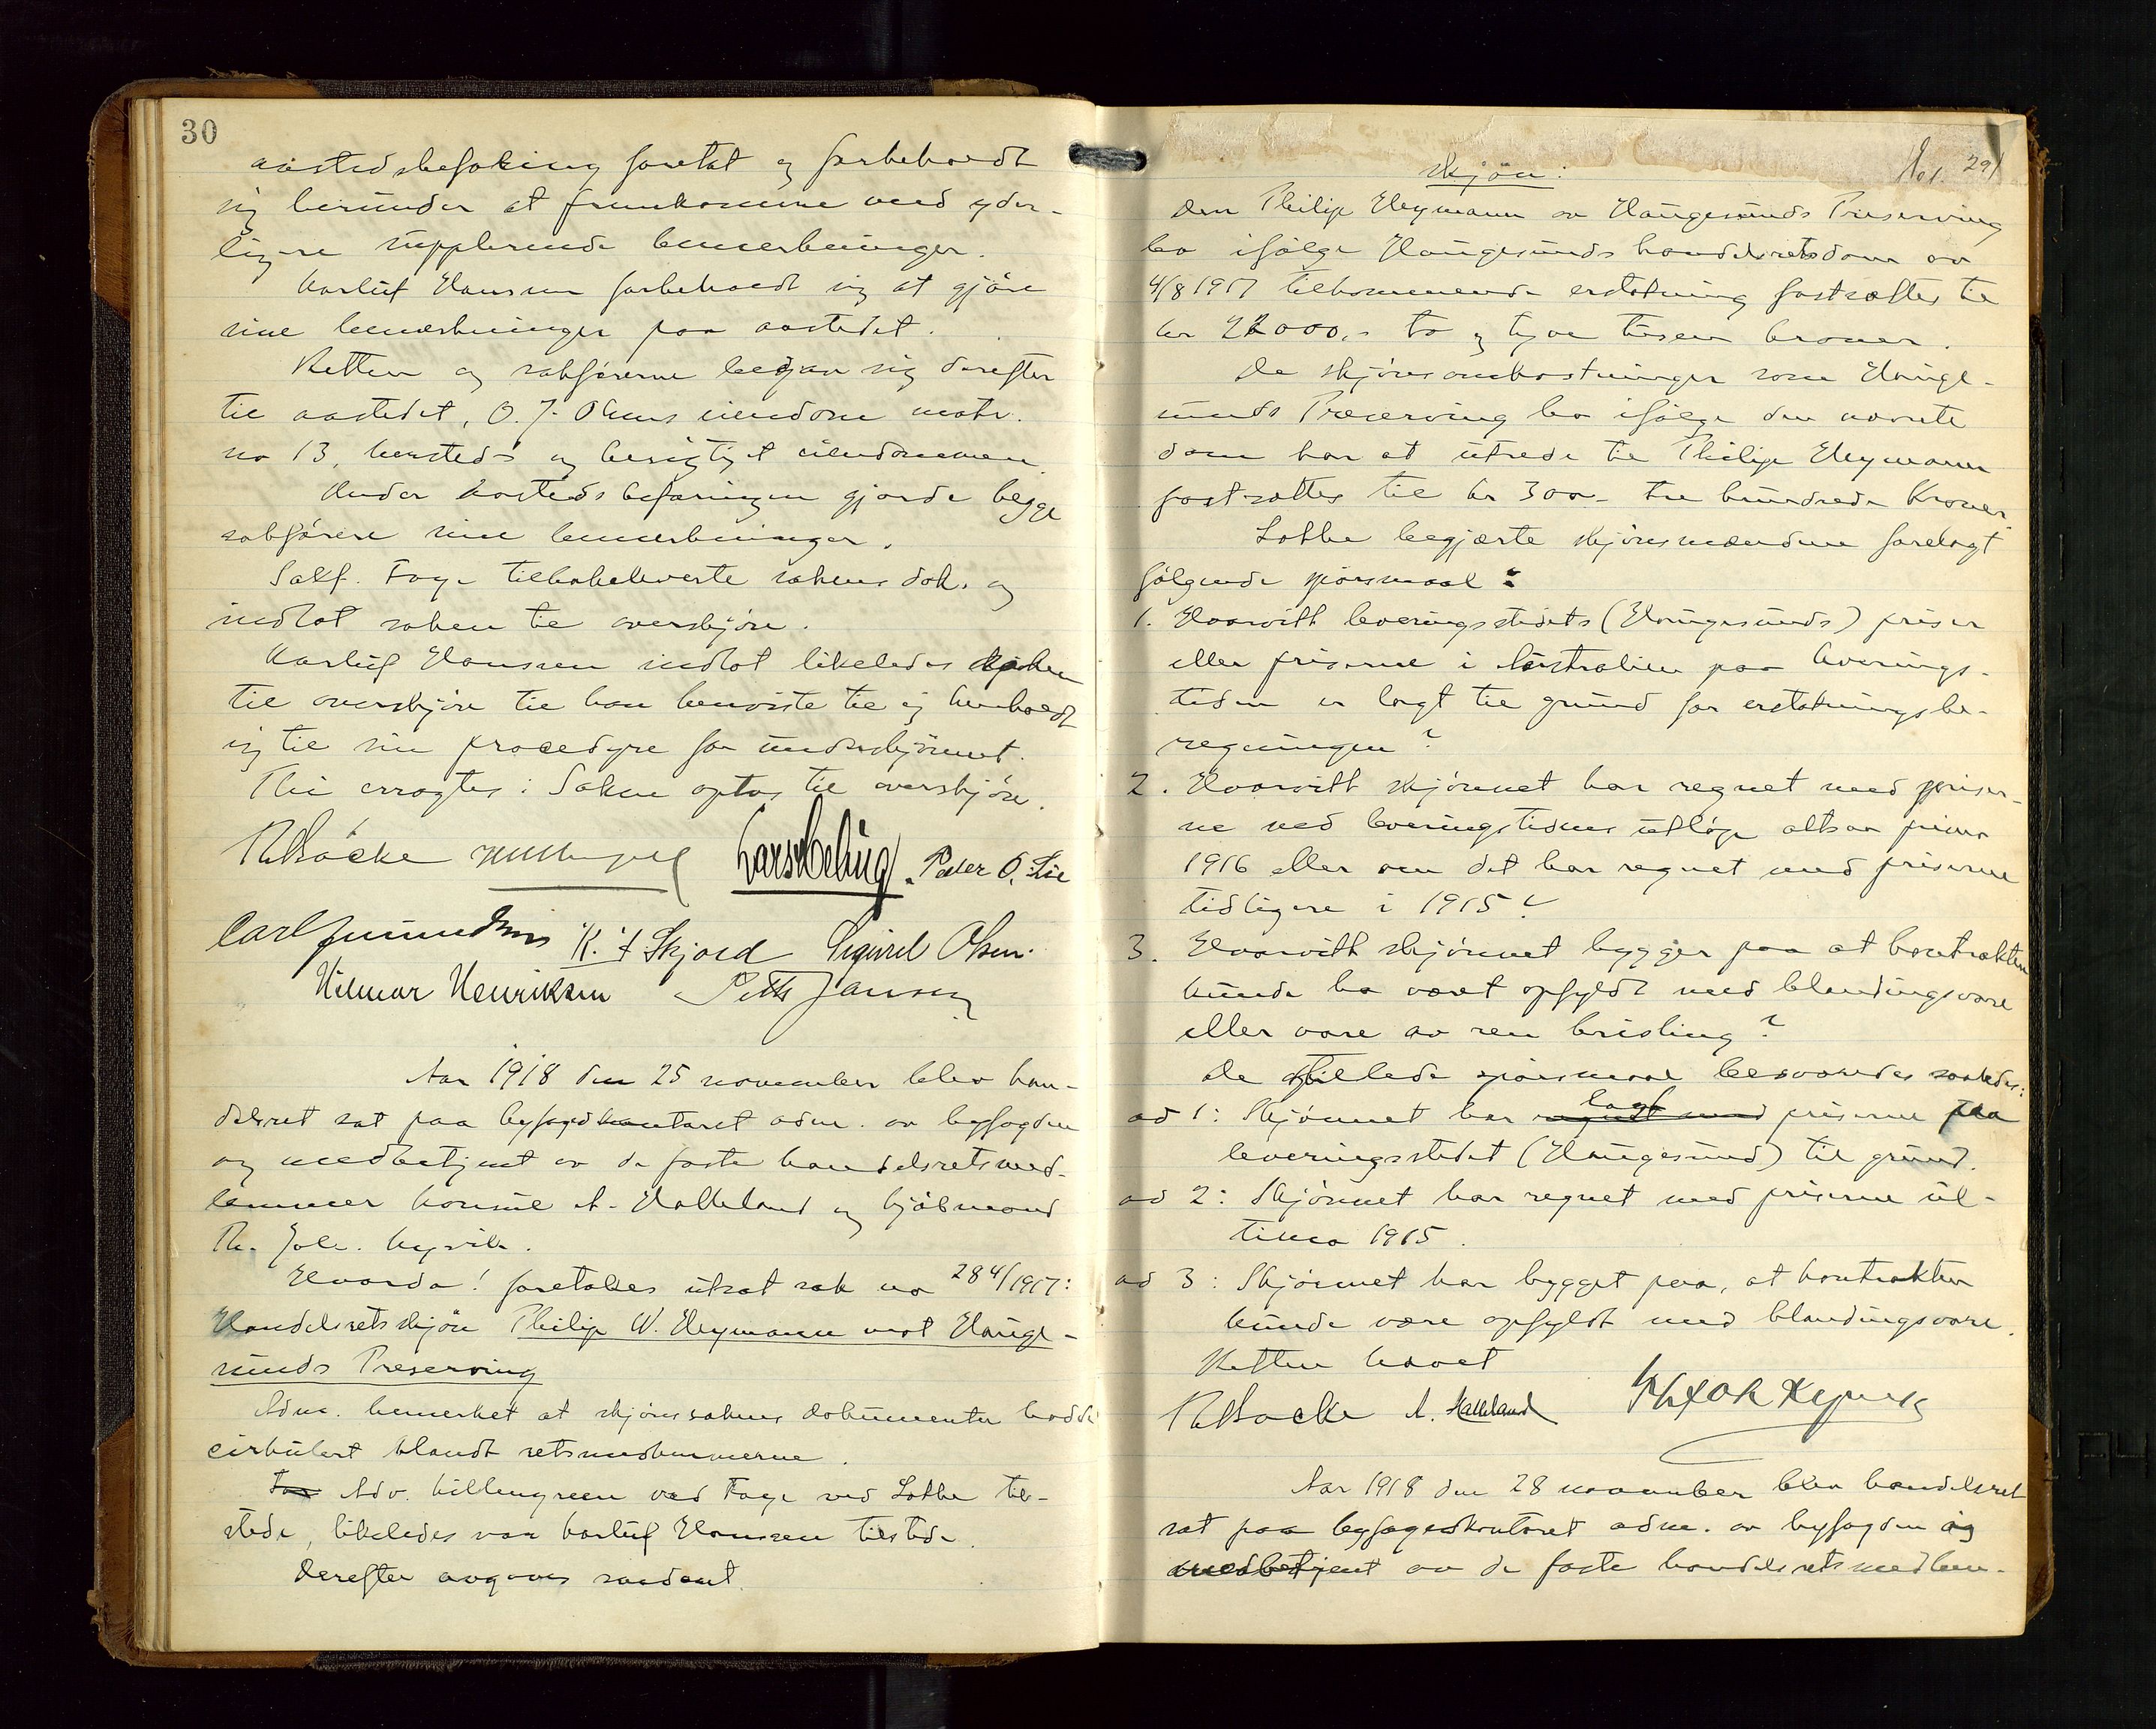 30
aastedsbefaring foretat og forbeholdt
sig herunder at fremkomme med yder-
ligere supplerende bemerkninger.
Karluf Hanssen forbeholdt sig at gjöre
sine bemærkninger paa aastedet.
Retten og sakförerne begav sig derefter
til aastedet, O. J. Olsens eiendom matr.
no 13, hersteds og besigtiget eiendommen.
Under aastedsbefaringen gjorde begge
sakförere sine bemerkninger.
Sakf. Faye tilbakeleverte sakens dok. og
indlot saken til overskjön.
Karluf Hanssen indlot likeledes saken
til overskjön til han henviste til og henholdt
sig til sin procedyre for underskjönnet.
Thi eragtes: Saken optas til overskjön.
Peder O. Lie
K. J. Skjold Sigurd Olsen.
Hilmar Henriksen Jansen
Aar 1918 den 25 november blev han-
delsret sat paa byfogdkontoret adm. av byfogden
og medbetjent av de faste handelsretsmed-
lemmer konsul A. Halleland og kjöbmand
Th. Joh. Kyvik.
Hvorda! foretokes utsat sak no 284/1917:
Handelsretsskjön Philip W. Heymann mot Hauge-
sunds Preserving
Adm. bemerket at skjönssakens dokumenter hadde
cirkulert blandt retsmedlemmerne.
Adv. Killengreen ved Faye ved Lothe til-
stede, likeledes var Karluf Hanssen tilstede.
Derefter avgaves saadant
skjön:
291
Den Philip Heymann av Haugesunds Preserving
bo ifölge Haugesunds handelsretsdom av
4/8 1917 tilkommende erstatning fastsættes til
kr 22000,- to og tyve tusen kroner.
De skjönsomkostninger som Hauge-
sunds Preserving bo ifölge den nævnte
dom har at utrede til Philip Heymann
fastsættes til kr 300- tre hundrede Kroner.
Lothe begjærte skjönsmændene forelagt
fölgende spörsmaal:
1. Hvorvitt leveringsstedets (Haugesunds) priser
eller priserne i Australien paa leverings-
tiden er lagt til grund for erstatningsbe-
regningen?
2. Hvorvitt skjönnet har regnet med priser-
ne ved leveringstidens utlöp altsaa primo
1916 eller om det har regnet med priserne
tidligere i 1915?
3. Hvorvitt skjönnet bygger paa at kontrakten
kunde ha været opfyldt med blandingsvare
eller vare av ren brisling?
De stillede spörsmaal besvaredes saaledes:
ad 1: Skjönnet har regnet med lagt priserne paa
leveringsstedet (Haugesund) til grund.
ad 2: Skjönnet har regnet med priserne ul-
timo 1915.
ad 3: Skjönnet har bygget paa, at kontrakten
kunde være opfyldt med blandingsvare.
Retten hævet
A. Halleland
Aar 1918 den 28 november blev handelsret
sat paa byfogedkontoret adm. av byfogden og
medbetjent av de faste handelsretsmedlem-